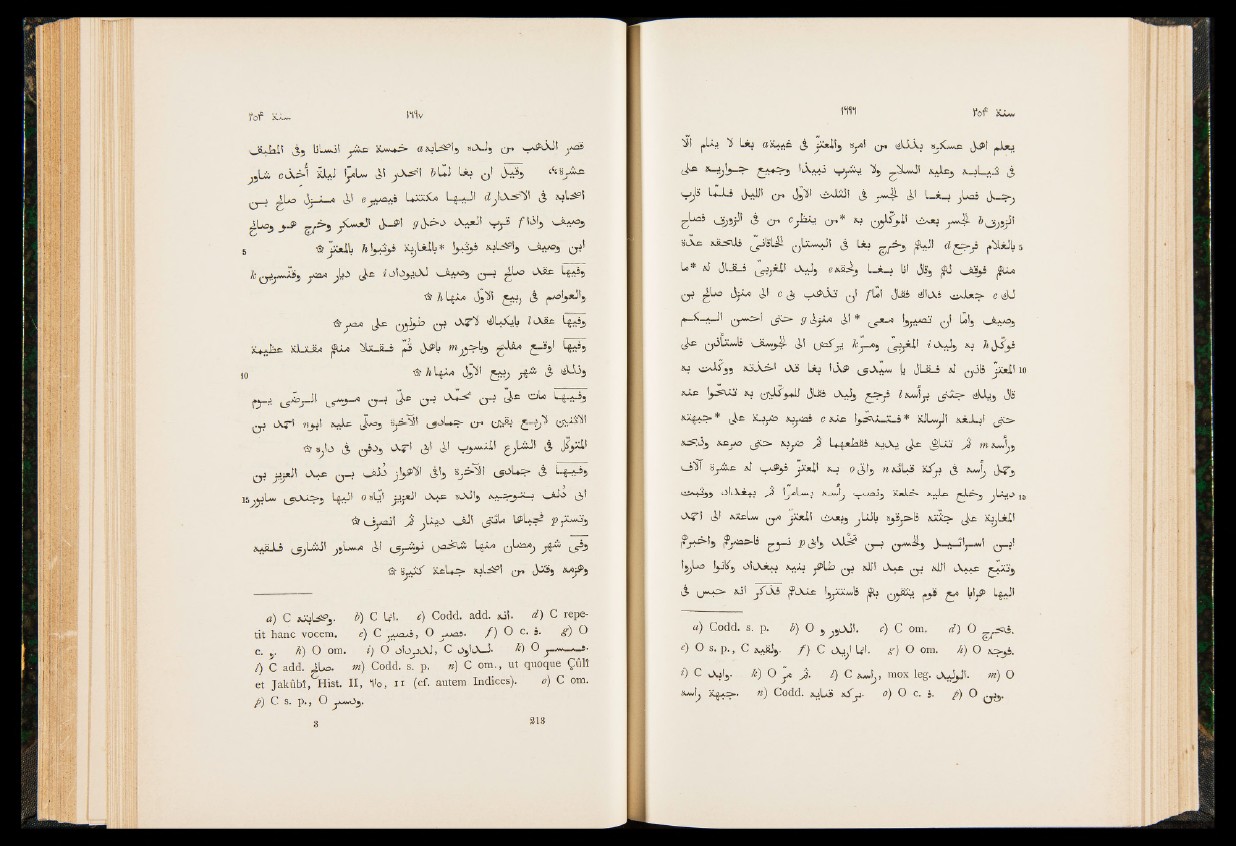 سنة ٢٥٤ ١٦٩٦
يعلم اهل عسكره بذلك من امره والمعتزّ فى غيبة a بغا لا ينام الّا
فى ثيابه وعليه السلاح ولا يشرب نبيذا وجميع جواريه على
رجل فصار بغا الى الجسر فى الثلث الأول من الليل فلمّا قارب
الزورق b الجسر بعث الموكّلون به *من ينظر c من فى الزورق فصاح
5 بالغلام فرجع d اليهم وخرج بغا فى البستان الخاقانىّ فلحقه عدّة
منهم فوقف لهم وقال انا بغا ولحقه e وليد المغربىّ فقال له *ما
لك c جعلت فداك فقال امّا f ان تذهب بى c الى منزل صالح بن
وصيف وامّا ان تصيروا معى *الى منزلى g حتى احسن اليكم
فوكّل h به وليد i المغربىّ ومرّ k يركض الى الجوسف فاستأذن على
10 المعتزّ فاذن له فقال يا سيّدى هذا بغا قد اخذته ووكلت به
قال ويلك جئنى برأسه l فرجع وليد فقال للموكلين به تنحّوا عنه
حتى ابلغه الرسالة *فتنحّوا عنه c فضربه ضربة على *جبهته
ورأسه m ثم تناهى على يديه فقطعهما ثم ضربه حتى صرعه وذبحه
وحمل رأسه فى بركة قبائه n واتى o به المعتزّ فوهب له عشرة آلاف
15 دينار وخلع عليه خلعة ونصب رأسه بسامرّا ثم ببغداد ووثبت
المغاربة على جثّته فاحرقوه بالنار وبعث المعتزّ من ساعته الى احمد
ابن اسرائيل والحسن بن مخلّد وابى p نوح فاحضرهم واخبرهم
وتتبّع عبيد الله بن عبد الله بن طاهر بنيه ببغداد وكانوا صاروا
اليها هرابا مع قوم يثقون بهم فاستتروا عندهم فذكر انه حبس فى
a) Codd. s. p. b) O والدور. c) C om. d) O فخرج.
e) O s. p., C ولقيه. f) C انما اريد. g) O om. h) O فوجه.
i) C وابد. k) O ثم مر. l) C راسه, mox leg. الوليد. m) O
جبهة راسه. n) Codd. بركه قبايه. o) O c. ف. p) O وبن.
سنة ٢٥٤ ١٦٩٧
قصر الذهب من ولده واصحابه a خمسة عشر انسانا وفى المطبق
عشرة وقيل ان بغا لمّا b انحدر الى سامرّا ليلة أُخذ c شاور
اصحابه فى الانحدار d اليها مكتتما فيصير e الى منزل صالح بن
وصيف واذا f قرب العيد دخل g اهل العسكر وخرج هو وصالح
5 ابن وصيف واصحابه فوثبوا *بالمغاربة فوثبوا h بالمعتزّ
وفيها عقد صالح بن وصيف لديوداد i على ديار مصر وقنسرين k
والعواصم فى ربيع الأول منها h
وفيها عقد l بايكباك لاحمد بن طولون على مصر
وفيها اوقع مفلح وباجور m باهل قُم فقتلا منهم مقتلة عظيمة
10 وذلك فى شهر ربيع الأول منها h
وفيها مات علىّ بن محمّد بن علىّ بن موسى الرضى يوم
الاثنين لاربع بقين من جمادى الآخرة وصلّى عليه ابو n احمد بن
المتوكّل فى الشارع المنسوب الى ابى احمد ودفن فى داره
وفيها فى جمادى الآخرة وافى الاهواز دُلَف بن عبد العزيز بن
15 ابى دُلف بتوجيه والده عبد العزيز ايّاه o اليها وجندى سابور
وتستر p فجباها مائتى الف دينار ثم انصرف
وفى شهر رمضان منها شخص نوشرى الى مساور الشارى فلقيه
وهزمه وقتل من اصحابه جماعة كثيرة
a) C وصحابته. b) C انما. c) Codd. add. انه. d) C repe-
tit hanc vocem. e) C فيصير, O فصير. f) O c. ف. g) O
c. و. h) O om. i) O , C . k) O .
l) C add. صالح. m) Codd. s. p. n) C om., ut quoque Çûlî
et Jakûbî, Hist. II, ٦١٥, 11 (cf. autem Indices). o) C om.
p) C s. p., O .
3 213